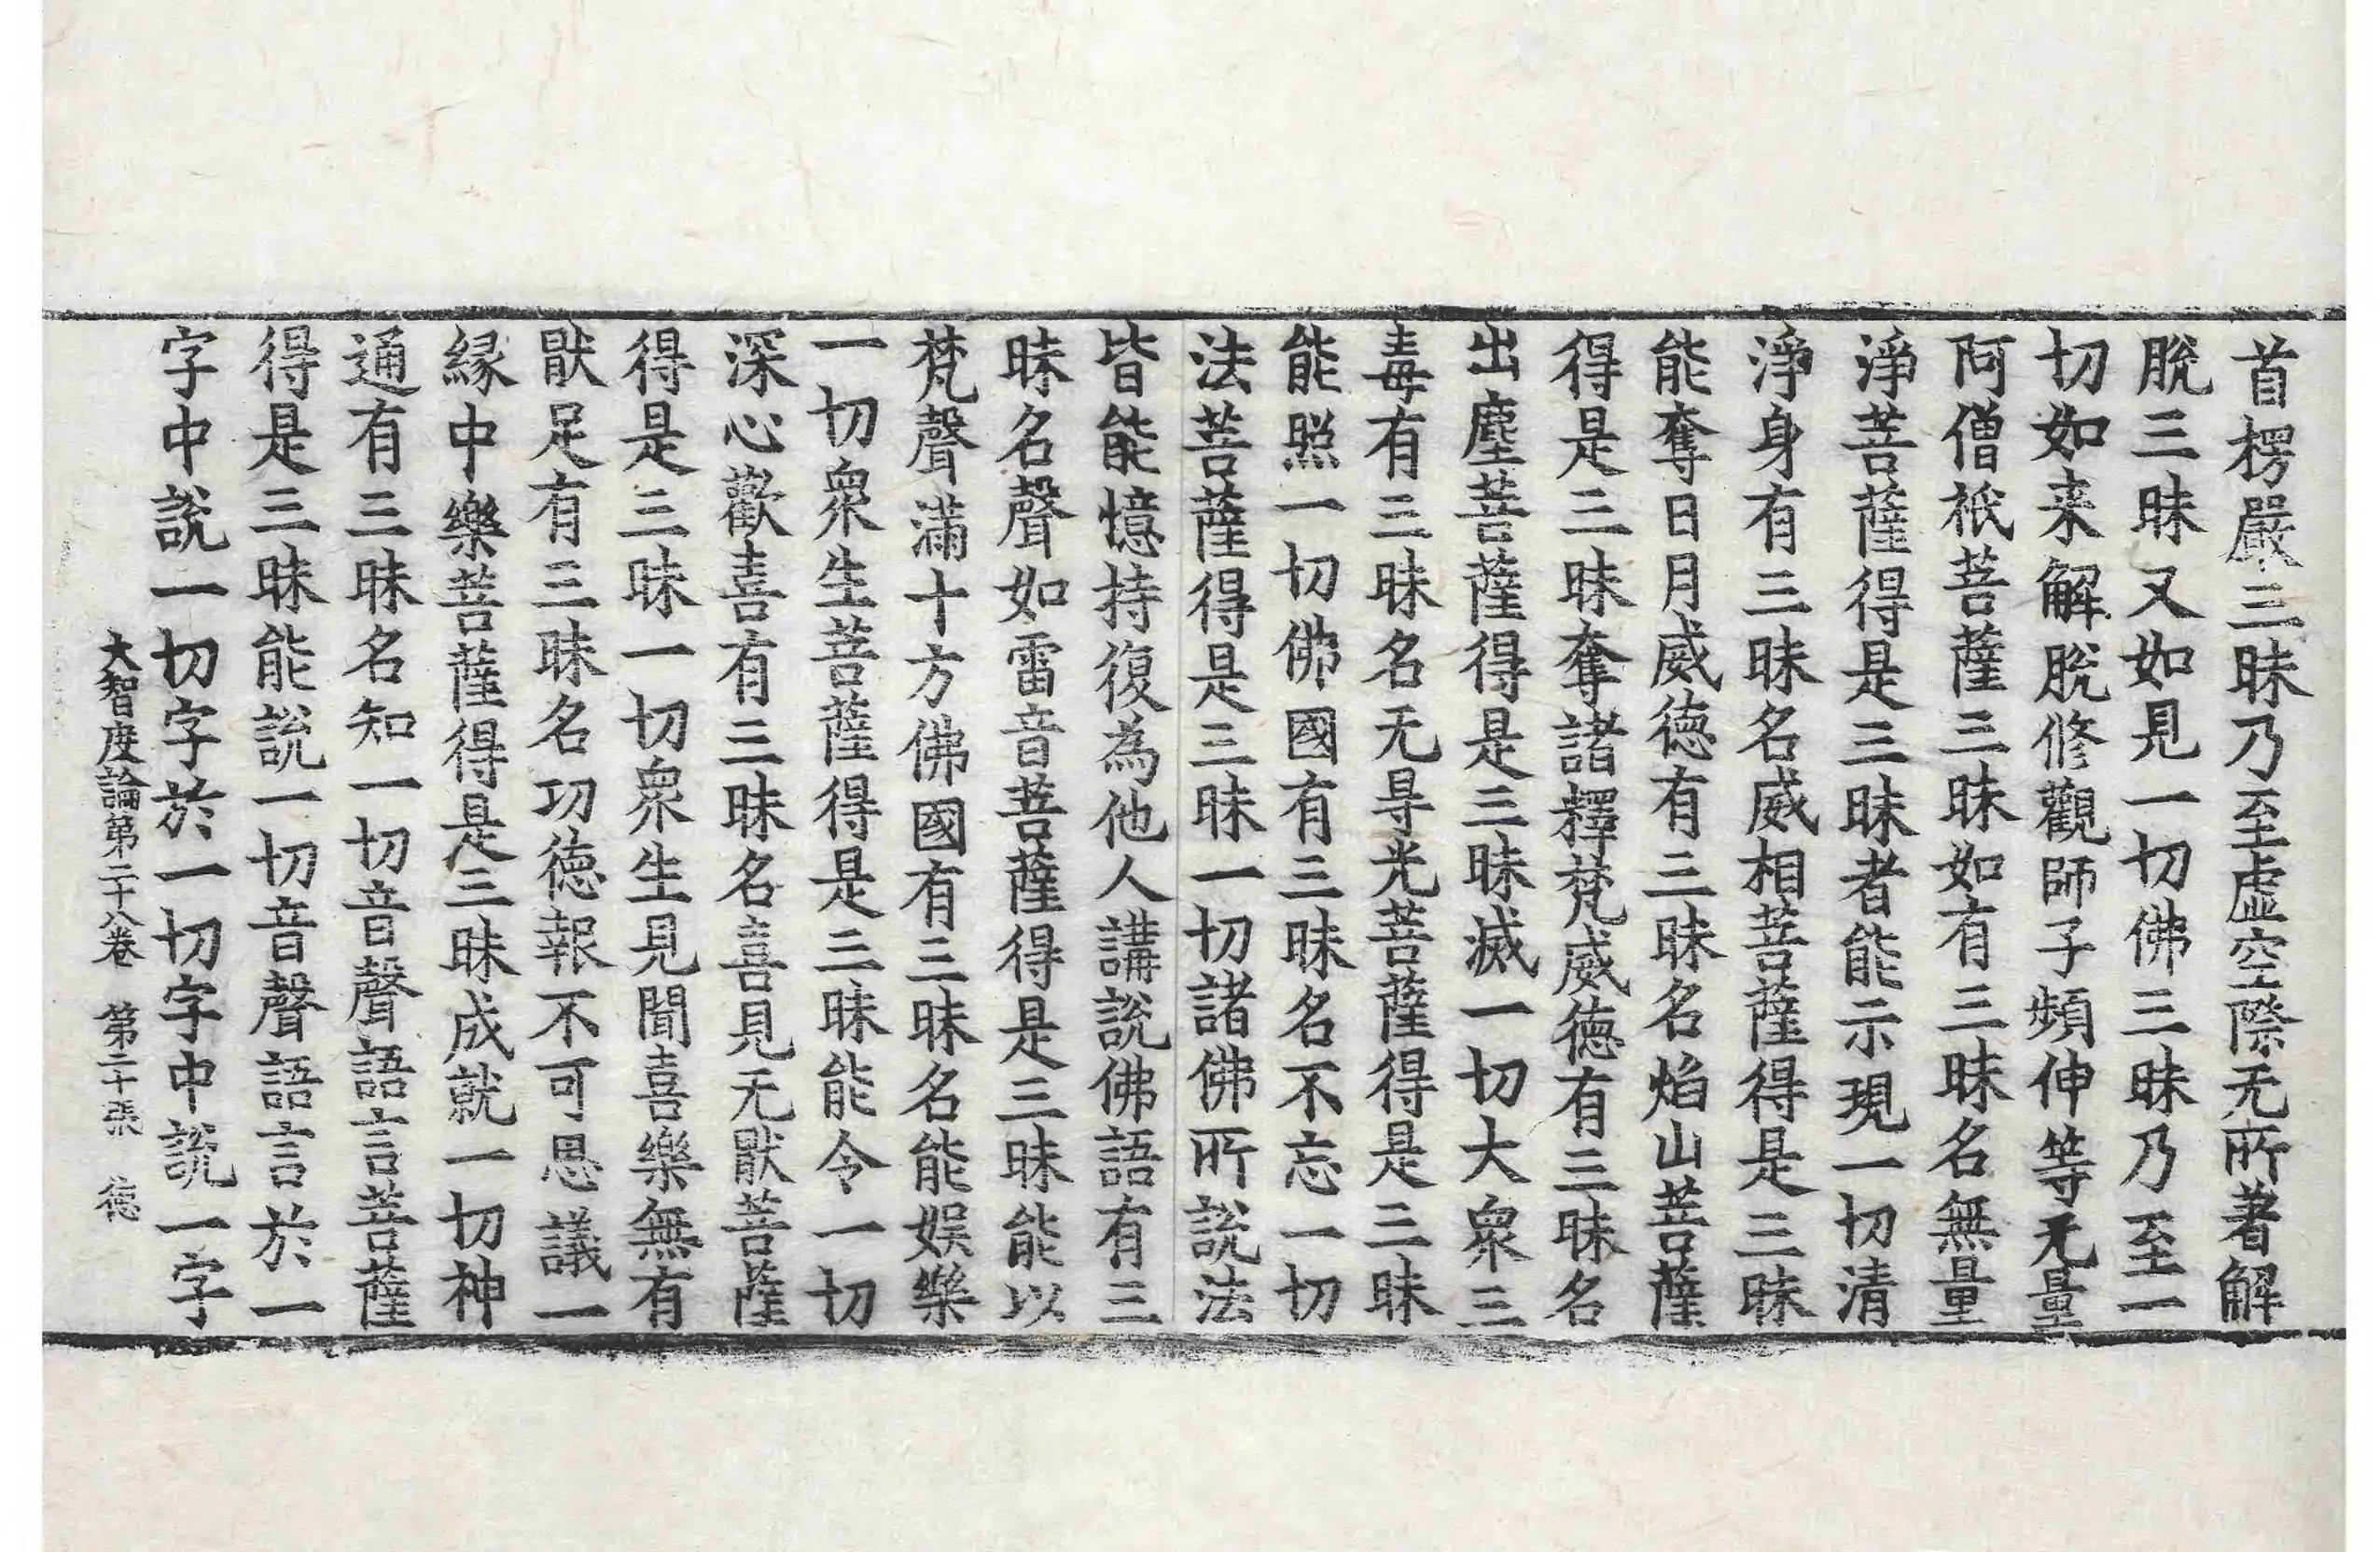 首楞嚴三昧乃至虛空際无所著解
脫三昧又如見一切佛三昧乃至一
切如来解脫修觀師子頻伸等无量
阿僧祇菩薩三昧如有三昧名無量
淨菩薩得是三昧者能示現一切清
淨身有三昧名威相菩薩得是三昧
能奪日月威德有三昧名焰山菩薩
得是三昧奪諸釋梵威德有三昧名
出塵菩薩得是三昧滅一切大衆三
毒有三昧名无㝵光菩薩得是三昧
能照一切佛國有三昧名不忘一切
法菩薩得是三昧一切諸佛所說法
皆能憶持復為他人講說佛語有三
昧名聲如雷音菩薩得是三昧能以
梵聲滿十方佛國有三昧名能娛樂
一切衆生菩薩得是三昧能令一切
深心歡喜有三昧名喜見无猒菩薩
得是三昧一切衆生見聞喜樂無有
猒足有三昧名功德報不可思議一
緣中樂菩薩得是三昧成就一切神
通有三昧名知一切音聲語言菩薩
得是三昧能說一切音聲語言於一
字中說一切字於一切字中說一字
大智度論第二十八卷　第二十張　德